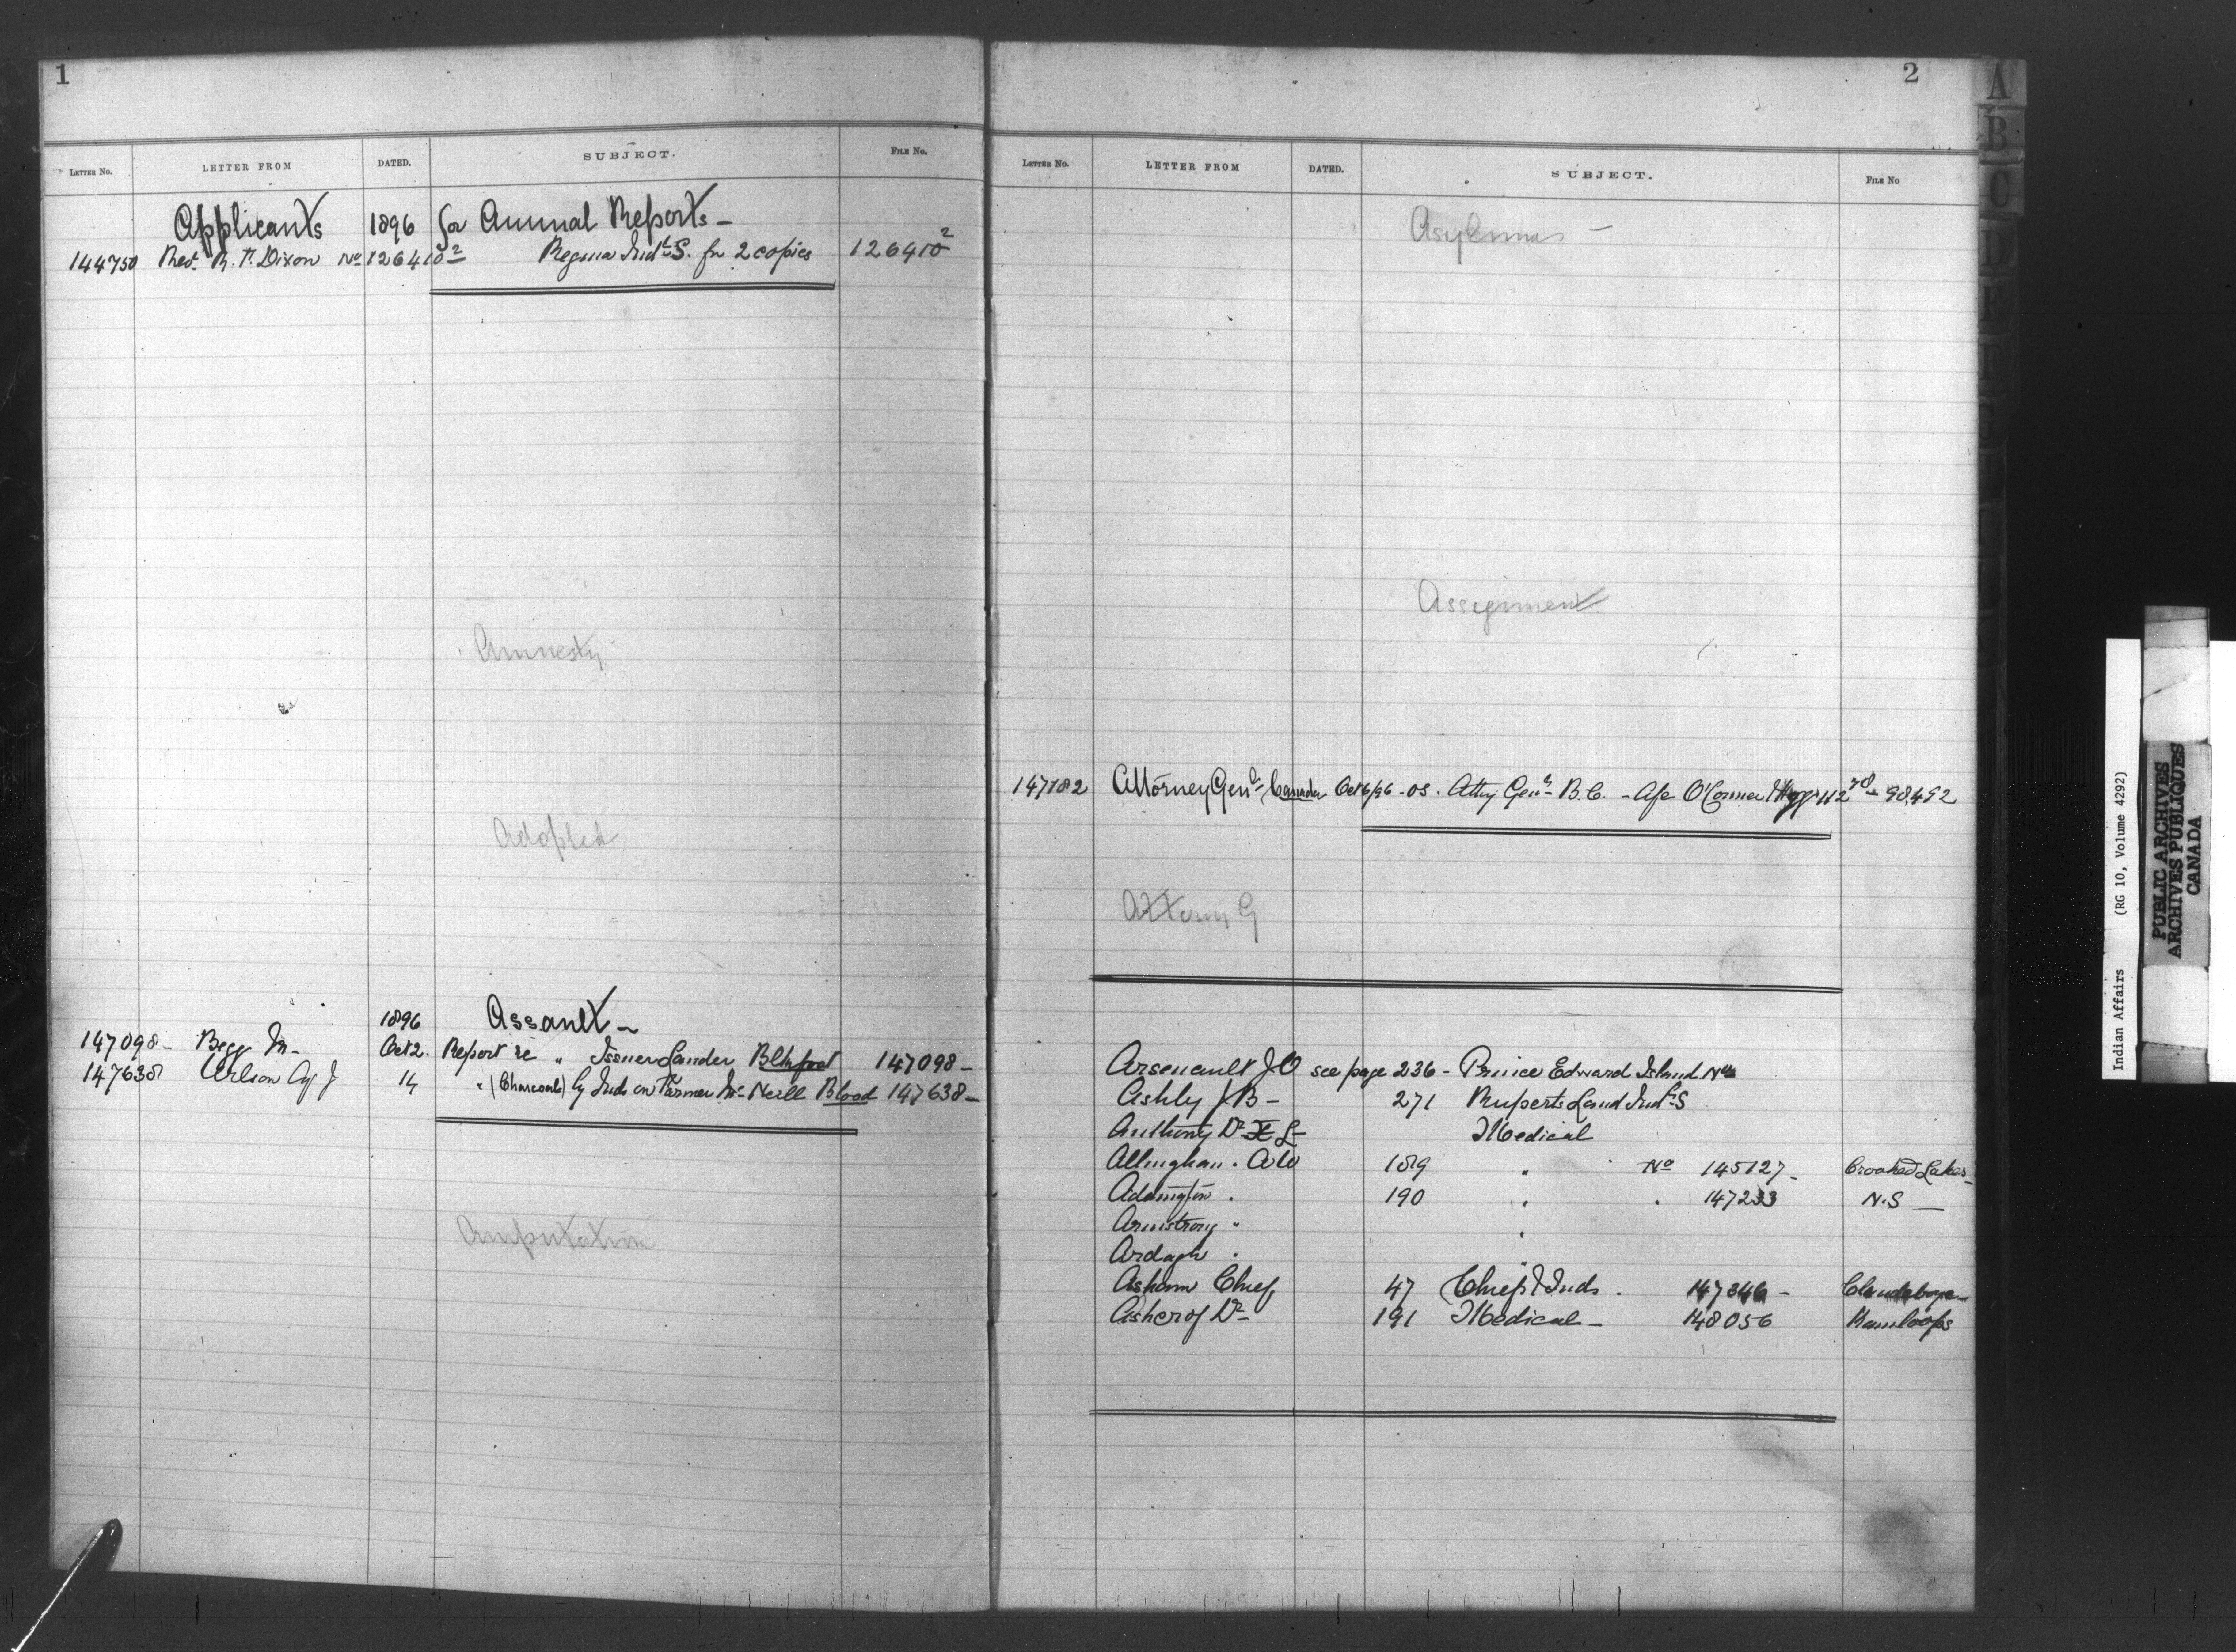 1
LETTER No. LETTER FROM DATED. SUBJECT. FILE No.
Applicants 1896 for Annual Reports -
144750 Revd. R. T. Dixon No 126410² Regina Indl S. for 2 copies 126410²
Amnesty
Adopted
1896 Assault -
147098 - Begg M - Oct 2. Report re " Issuer Lauder Blkfoot 147098 -
147638 Wilson Agt J 14 " (Charcoal) by Inds on Farmer Mc Neill Blood 147638 -
Amputation
2
LETTER No. LETTER FROM DATED. SUBJECT. FILE No
Asylums -
Assignment
147182 Attorney Genl Canada Oct 6/96 - OS. Atty Genl B.C. - O'Connor 98,492
Attorny G
Arsenault J O see page 236 - Prince Edward Island No
Ashly J B - 271 Ruperts Land Indl S
Anthony Dr Medical
Allingham . 189 " No 145127 - Crooked Lakes -
Addington . 190 " . 147233 N.S -
Armstrong " "
Ardagh . "
Asham Chief 47 Chiefs & Inds . 147346 - Clandeboye -
Ashcrof Dr - 191 Medical - 148056 Kamloops
A
B
C
D
E
Indian Affairs (RG 10, Volume 4292)
PUBLIC ARCHIVES
ARCHIVES PUBLIQUES
CANADA